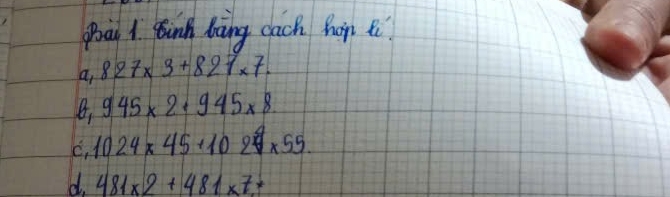 Bài 1. Tính bằng cách hợp lí.
a, 827 x 3 + 827 x 7.
b, 945 x 2 + 945 x 8
c, 1024 x 45 + 1024 x 55.
d, 481 x 2 + 481 x 7